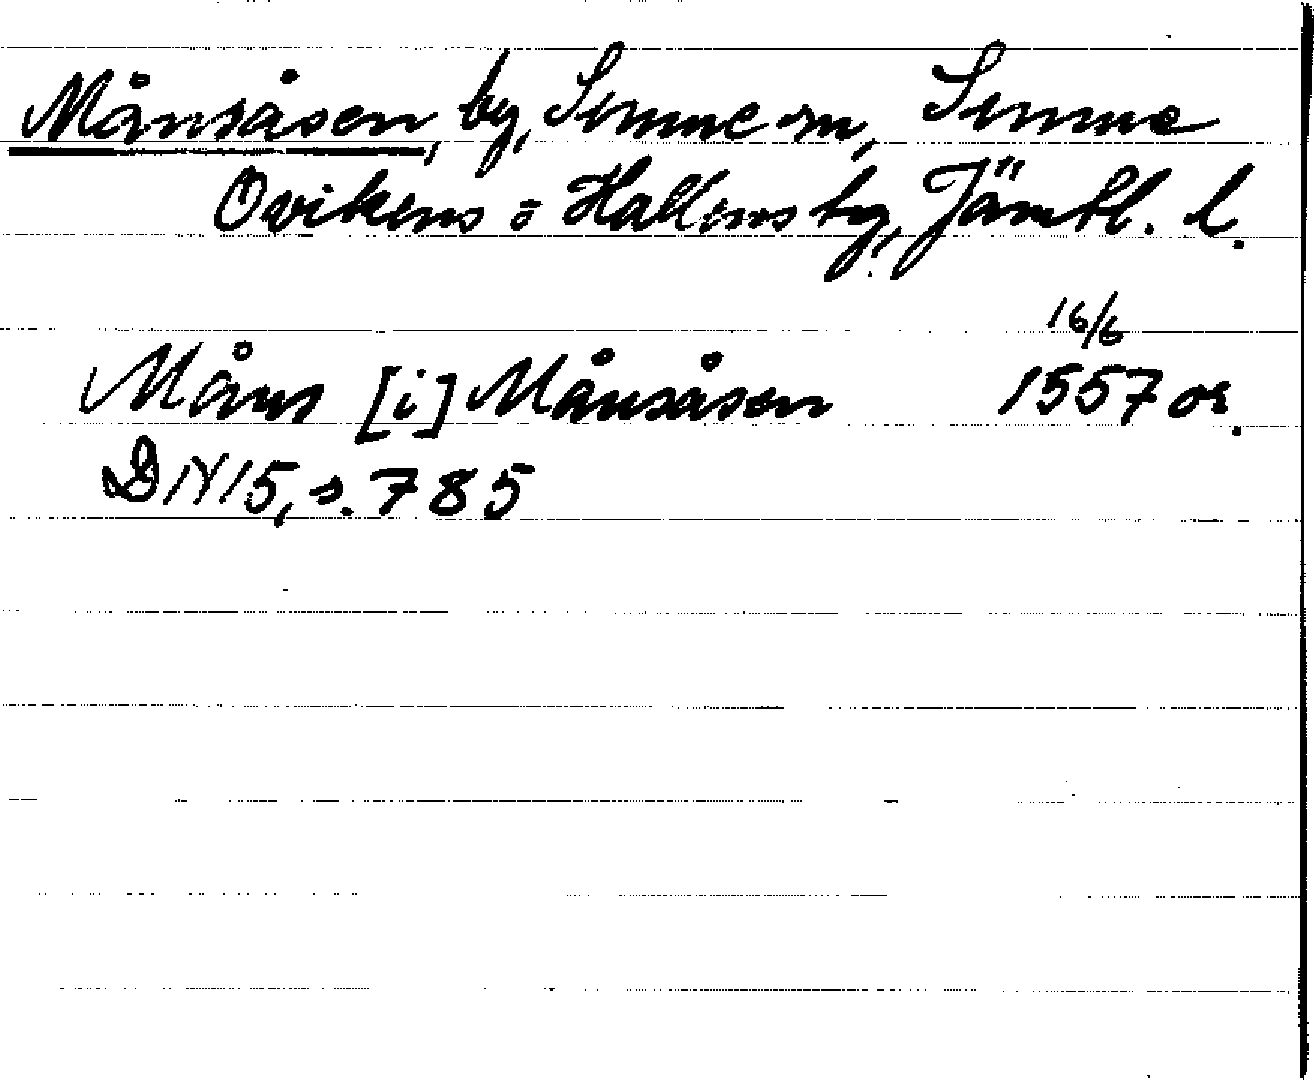 Månsåsen, by, Sunne sn, Sunne
Ovikens o Hallens tg, Jämtl. l.
16/6
Måns [i] Månsåsen 1557 or.
DN 15, s. 785